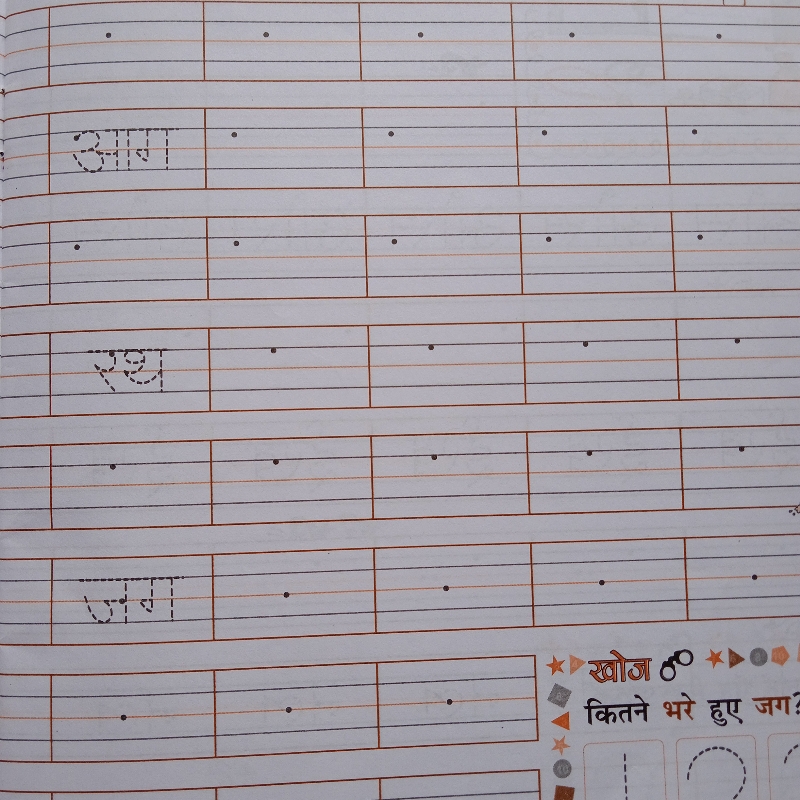 आग
रथ
जग
खोज
कितने भरे हुए जग?
1 2